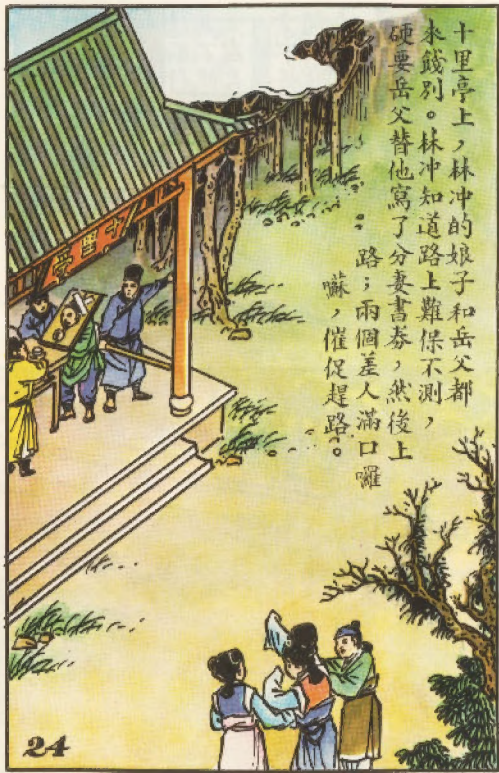 十里亭上，林冲的娘子和岳父都
来餞別。林冲知道路上難保不測，
硬要岳父替他寫了分妻書券，然後上
路；兩個差人滿口囉
囌，催促趕路。
十里亭
24